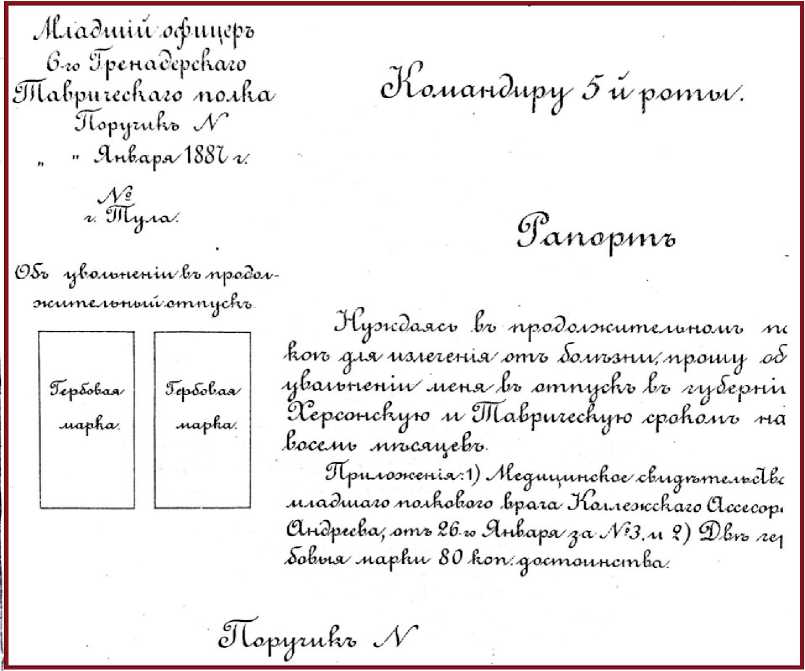 Младшій офицеръ
6-го Гренадерскаго
Таврическаго полка
Поручикъ N
„ " Января 1887 г.
№
г. Тула.
Объ увольненіи въ продол-
жительный отпускъ
Гербовая
марка.
Гербовая
марка.
Командиру 5 й роты.
Рапортъ
Нуждаясь въ продолжительномъ по
коѣ для излеченія отъ болѣзни, прошу об
увольненіи меня въ отпускъ въ губерні
Херсонскую и Таврическую срокомъ на
восемь мѣсяцевъ.
Приложенія: 1) Медицинское свидѣтельство
младшаго полкового врача Коллежскаго Ассесор
Андреева, отъ 26-го Января за №3. и 2) Двѣ гер
бовыя марки 80 коп. достоинства.
Поручикъ N